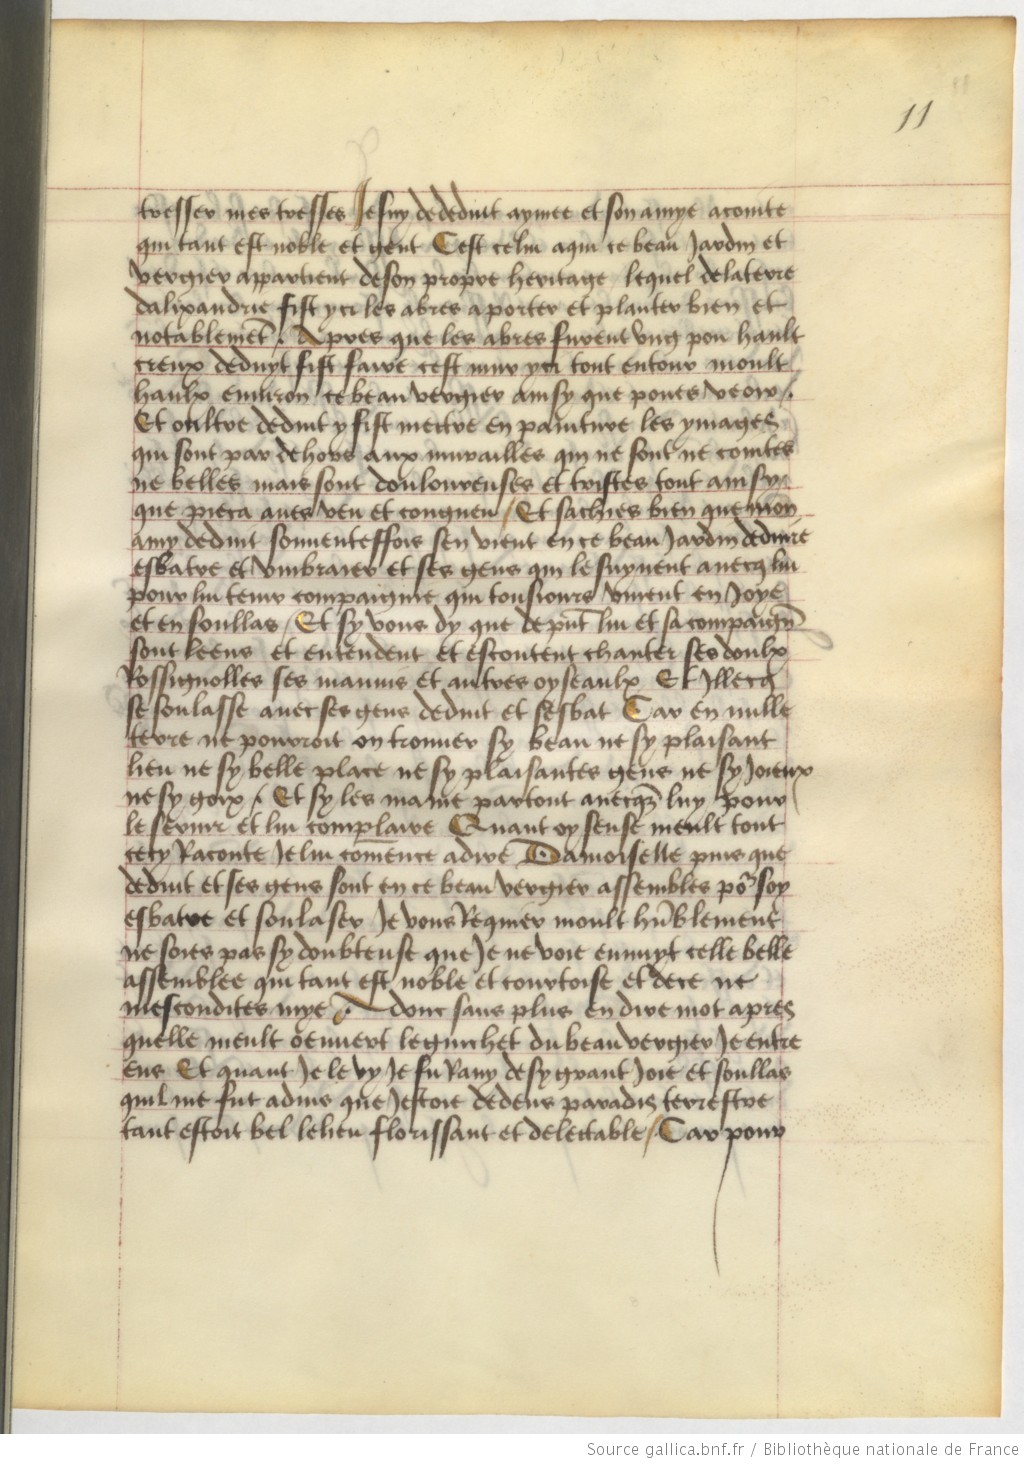 11
tresser mes tresses Je suy de deduit aymee et son amye acointe
qui tant est noble et gent Cest celui a qui ce beau Jardin et
vergier appartient de son propre heritage lequel de la terre
dalixandrie fist yci les abres aporter et planter bien et
notablemẽt . Apres que les abres furent ung pou hault
creux deduyt fist faire cest mur yci tout entour moult
haulx environ ce beau vergier ainsy que poues veoir .
Et oultre deduit y fist mectre en painture les ymages
qui sont par dehors aux murailles qui ne sont ne cointes
ne belles mais sont douloureuses et tristes tout ainsy
que pieca aues veu et congneu / Et sachies bien que mon
amy deduit souuenteffois sen vient en ce beau Jardin deduire
esbatre et umbraier et ses gens qui le suyuent auecq lui
pour lui tenir compaignie qui tousiours viuent en Joye
et en soullas / Et sy vous dy que de pñt lui et sa compaigñ
sont leens et entendent et escoutent chanter ses doulx
Rossignolles ses mauuis et autres oyseaulx Et Illecq
se soulasse auec ses gens deduit et sesbat Car en nulle
terre ne pourroit on trouuer sy beau ne sy plaisant
lieu ne sy belle place ne sy plaisantes gens ne sy Joieux
ne sy gorx . Et sy les maine partout auecq̃ luy pour
le seruir et lui complaire Quant oyseuse meult tout
cecy Raconte Je lui com̃ence a dire Damoiselle puis que
deduit et ses gens sont en ce beau vergier assembles po͛ soy
esbatre et soulaser Je vous Requier moult hũblement
ne soies pas sy doubteuse que Je ne voie ennuyt celle belle
assemblee qui tant est noble et courtoise et de ce ne
mescondites mye . Adonc sans plus en dire mot apres
quelle meult oeuuert le guichet du beau vergier Je entre
ens Et quant Je le vy Je fu Rauy de sy grant Joie et soullas
quil me fut aduis que Jestoie dedens paradis terrestre
tant estoit bel le lieu florissant et delectable / Car pour
Source gallica.bnf.fr / Bibliothèque nationale de France